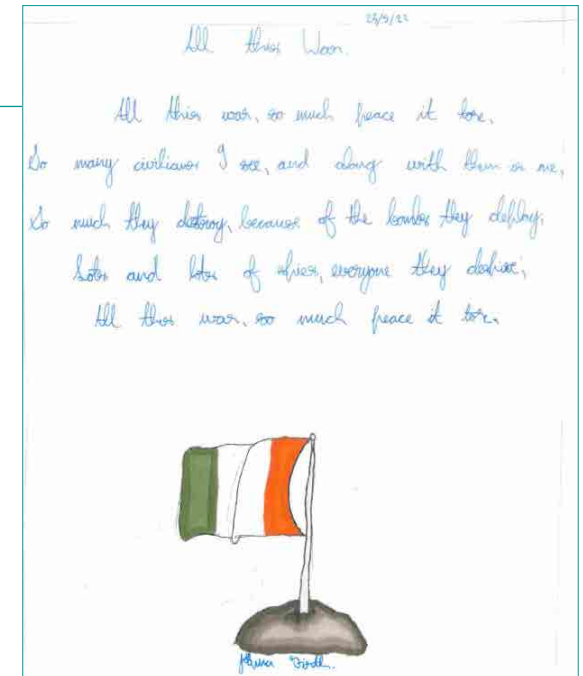 23/9/22
All this War.
All this war, so much peace it tore,
So many civilians I see, and along with them is me,
So much they destroy, because of the bombs they deploy,
Lots and lots of spies, everyone they despise,
All this war, so much peace it tore.